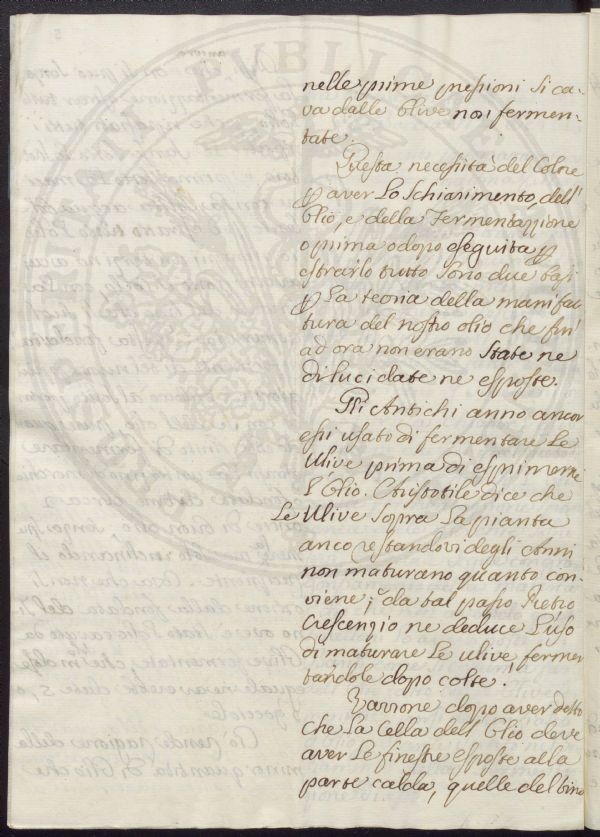 nelle prime pressioni si ca-
va dalle Olive non fermen-
tate.
Questa necessità del Colore
p aver Lo Schiarimento, dell'
Olio, e della Fermentazzione
o prima o dopo eseguita p
estrarlo tutto sono due basi
p La teoria della manifat-
tura del nostro olio che fin'
ad ora non erano State ne
dilucidate ne esposte.
Gli Antichi anno ancor
essi usato di fermentare Le
Ulive prima di esprimerne
l'Olio. Aristotile dice che
Le Ulive sopra La pianta
anco restandovi degli Anni
non maturano quanto con-
viene; da tal passo Pietro
Crescenzio ne deduce L'uso
di maturare Le ulive fermen-
tandole dopo colte.
Varrone dopo aver detto
che La Cella dell' Olio deve
aver Le finestre esposte alla
parte calda, quelle del vino